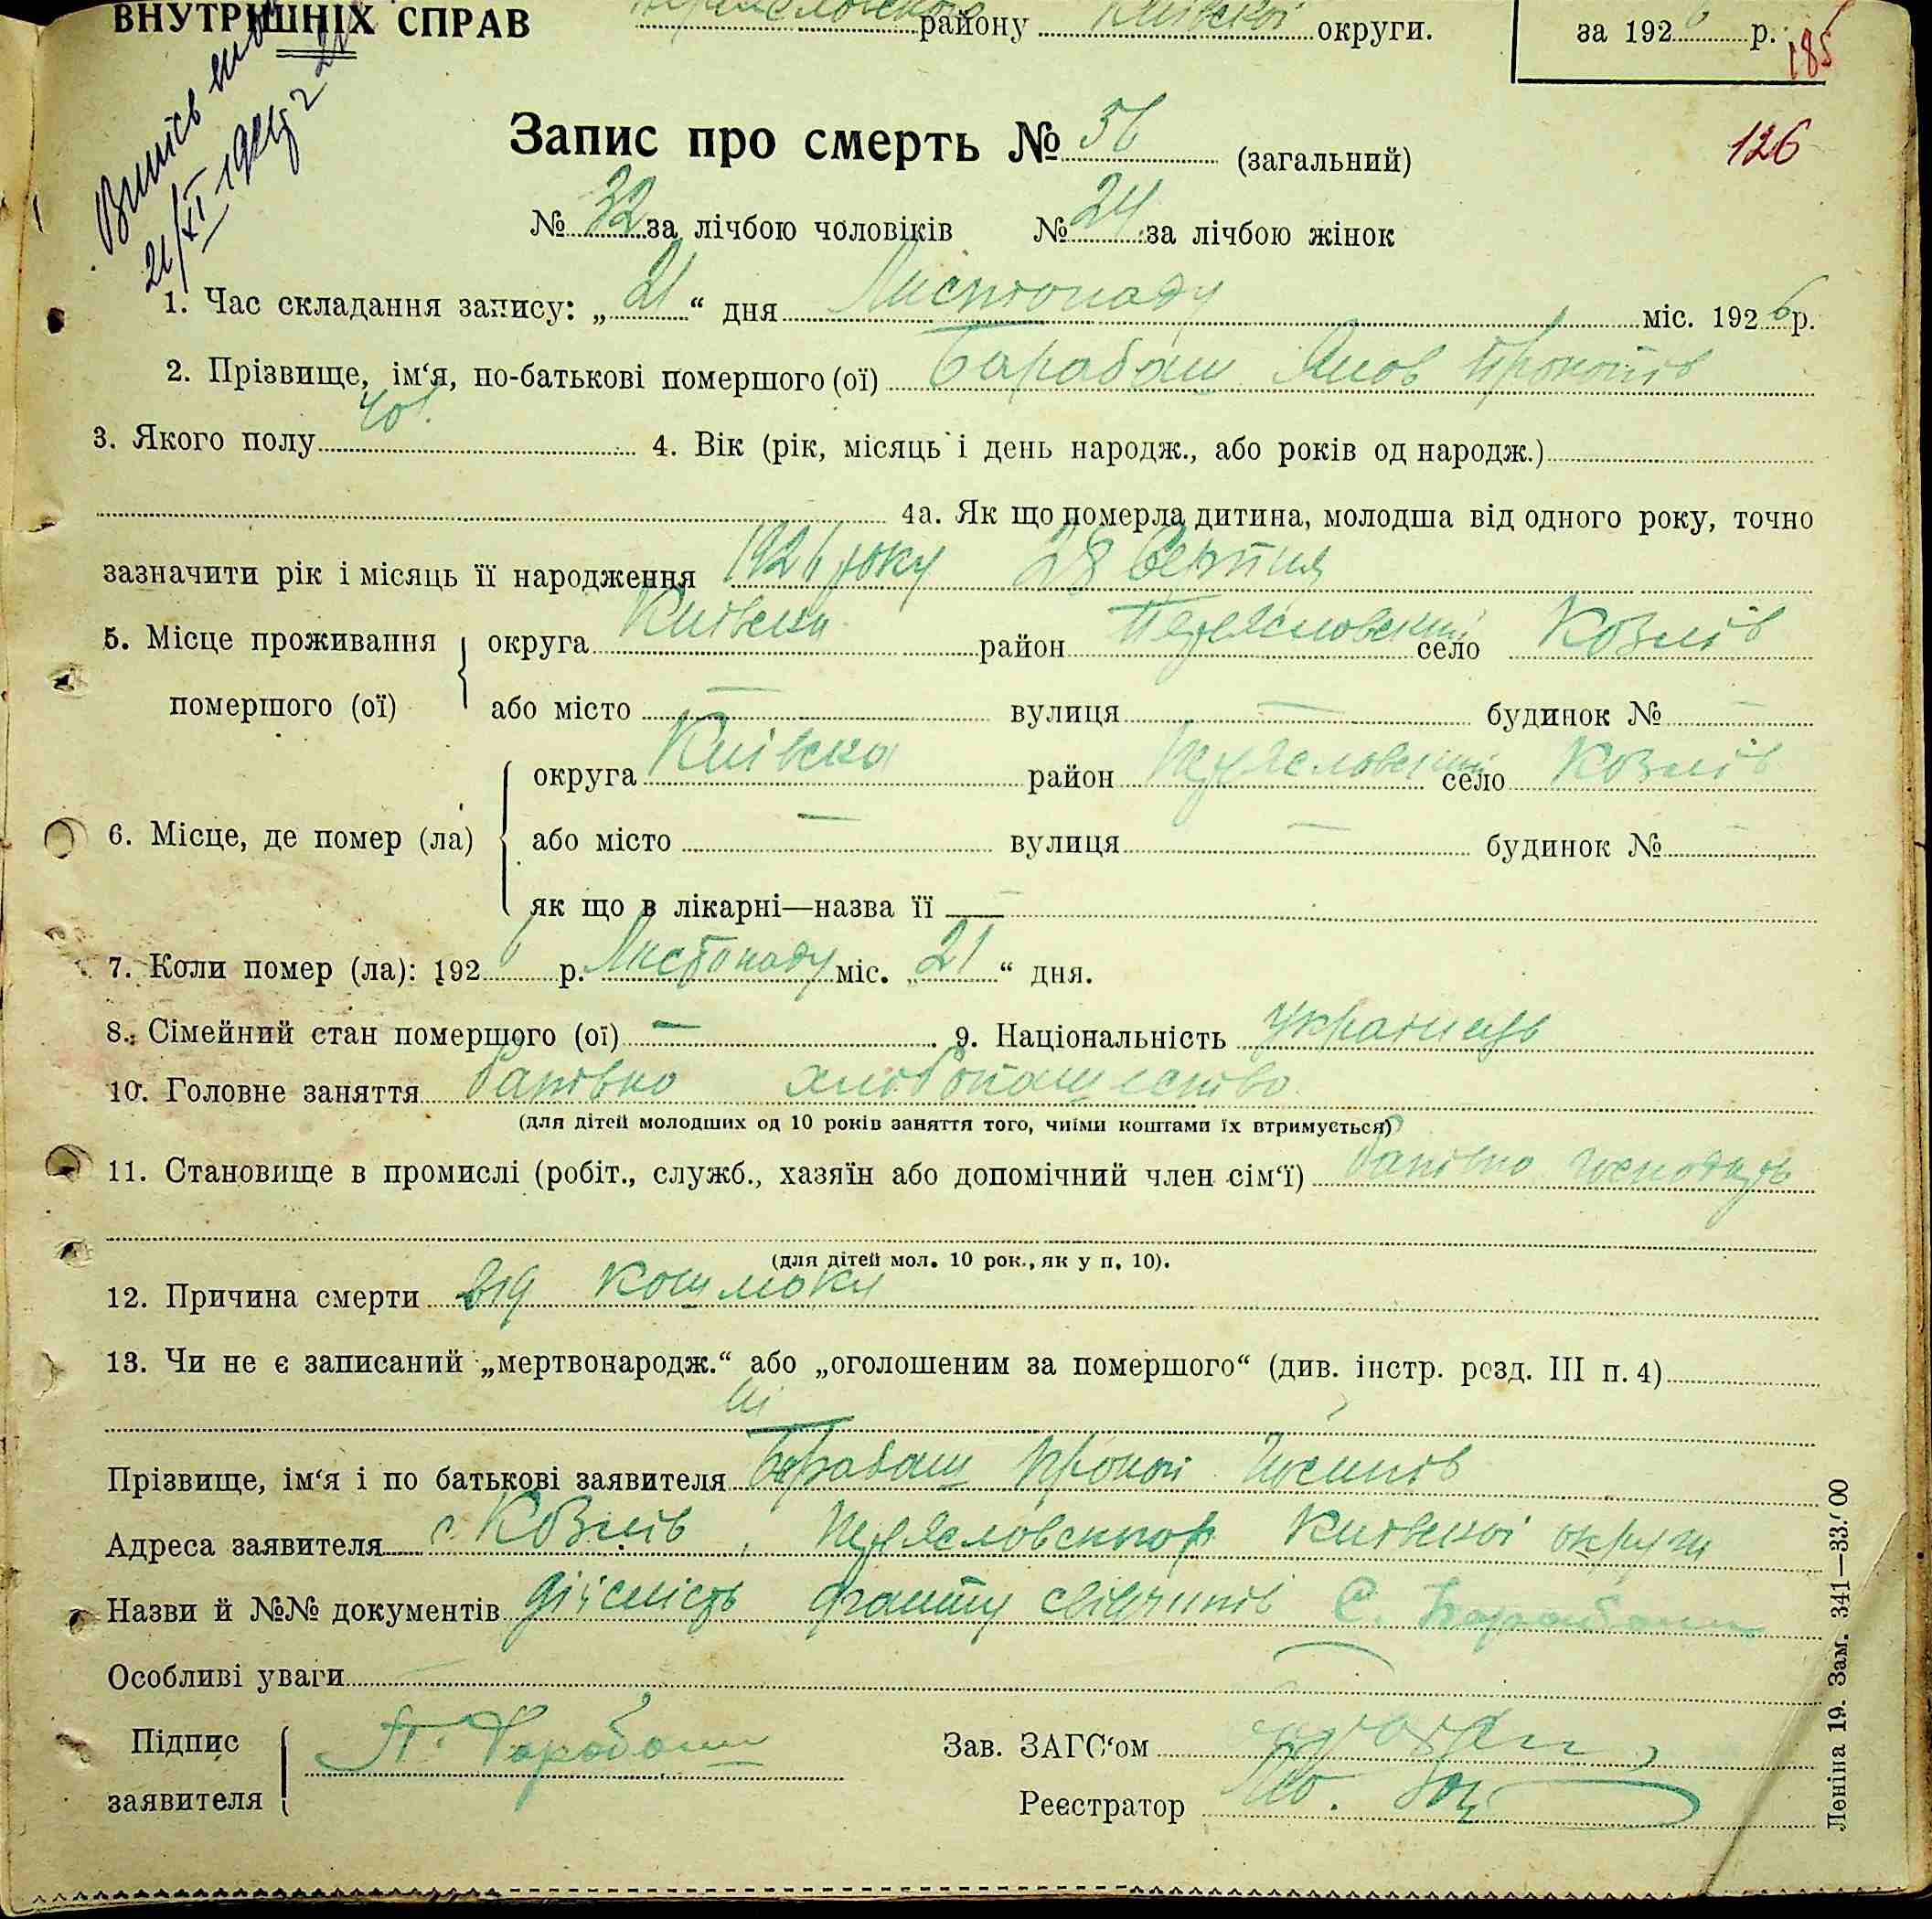 ВНУТРІШНІХ СПРАВ району Київської округи. за 1926 р.
185
Запис про смерть № 56 (загальний)
126
№ 32 за лічбою чоловіків № 24 за лічбою жінок
1. Час складання запису: „21“ дня Листопаду міс. 1926 р.
2. Прізвище, ім‘я, по-батькові помершого (ої) Барабаш Яков Прокопів
3. Якого полу чол. 4. Вік (рік, місяць і день народж., або років од народж.)
4а. Як що померла дитина, молодша від одного року, точно
зазначити рік і місяць її народження 1926 року 28 Серпня
5. Місце проживання округа Київська район село Козлів
помершого (ої) або місто — вулиця — будинок № —
округа Київска район село Козлів
6. Місце, де помер (ла) або місто — вулиця — будинок № —
як що в лікарні—назва її —
7. Коли помер (ла): 1926 р. Листопаду міс. „21“ дня.
8. Сімейний стан помершого (ої) — 9. Національність Українець
10. Головне заняття батьково хліборобство
(для дітей молодших од 10 років заняття того, чиїми коштами їх втримується)
11. Становище в промислі (робіт., служб., хазяїн або допомічний член сім‘ї) батько
(для дітей мол. 10 рок., як у п. 10).
12. Причина смерти від кошлюку
13. Чи не є записаний „мертвонародж.“ або „оголошеним за помершого“ (див. інстр. розд. III п. 4)
ні
Прізвище, ім‘я і по батькові заявителя Барабаш Прокоп
Адреса заявителя с. Козлів, Київської округи
Назви й №№ документів дійсність факту свідчить С. Барабаш
Особливі уваги
Підпис П. Барабаш Зав. ЗАГС‘ом
заявителя Реєстратор
Леніна 19. Зам. 341—33.000